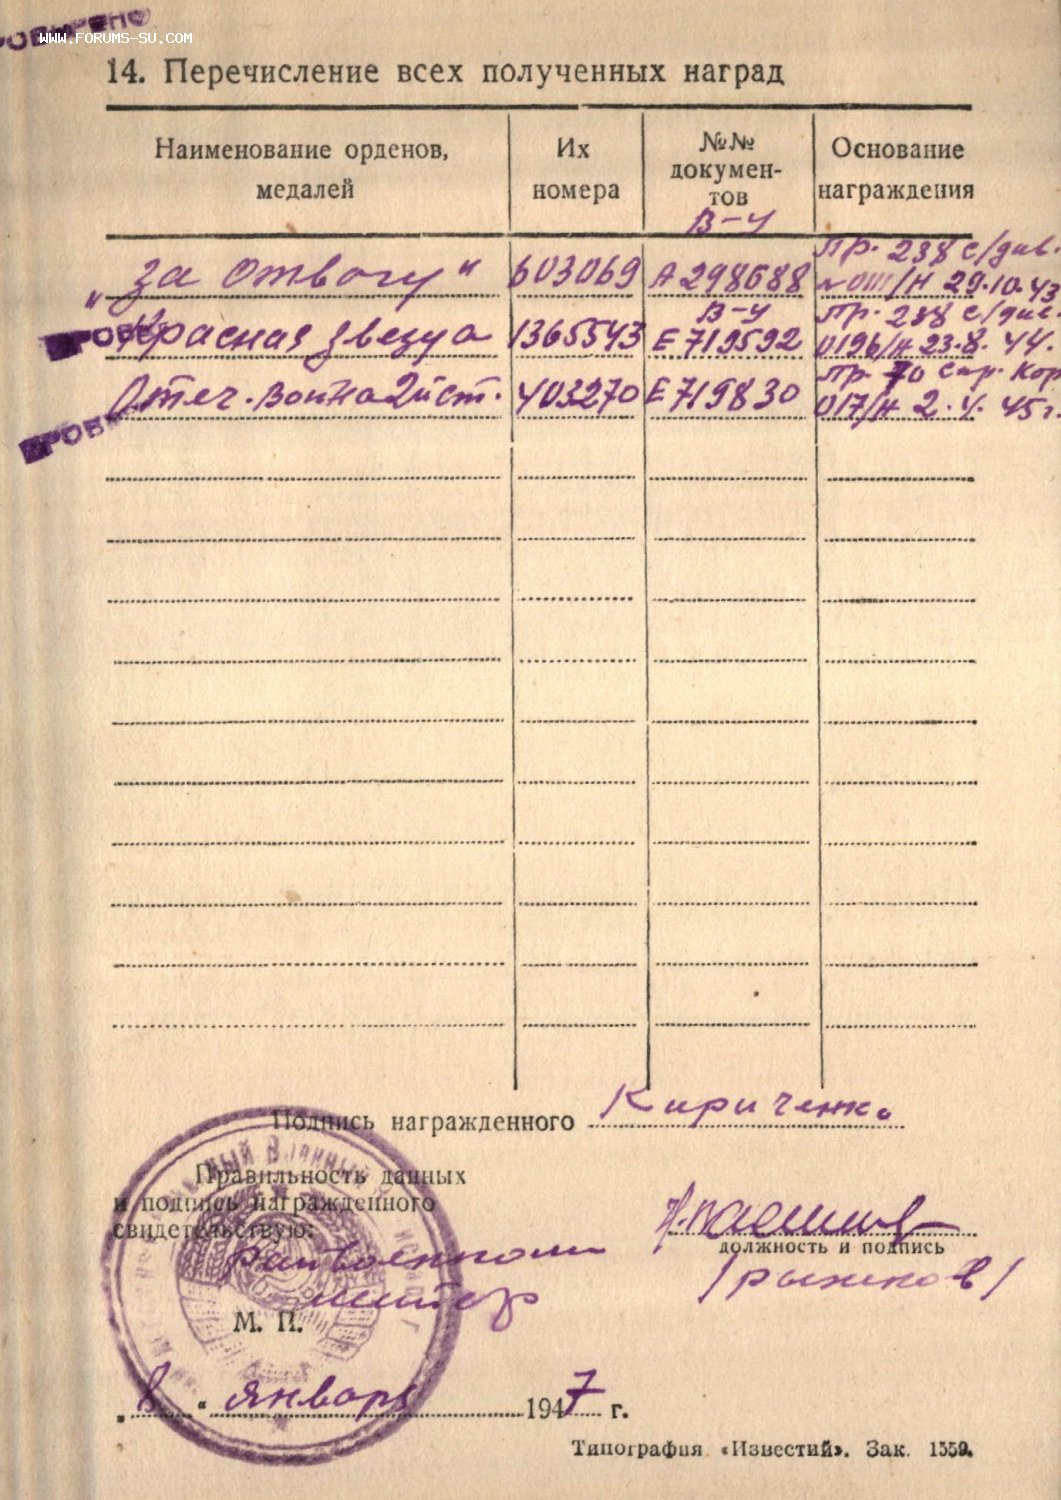 ПРОВЕРЕНО
www.forums-su.com
14. Перечисление всех полученных наград
Наименование орденов, медалей
Их номера
№№ документов
Основание награждения
В-У
Пр. 238 с/див.
„За отвагу" 603069 А 298688 /Н 29.10.43
В-У
Пр. 238 с/див.
ПРОВЕ
Красная звезда 1365543 Е 719592 0196/Н 23.8.44.
Пр. 70 Стр. Кор
Отеч. война 2й ст. 403270 Е 719830 017/Н 2.4.45 г.
ПРОВЕ
Подпись награжденного Кириченко
Правильность данных
и подпись награжденного
свидетельствую:
Райвоенком
майор
должность и подпись
/Рыжков/
М. П.
„8" января 1947 г.
Типография «Известий». Зак. 1559.